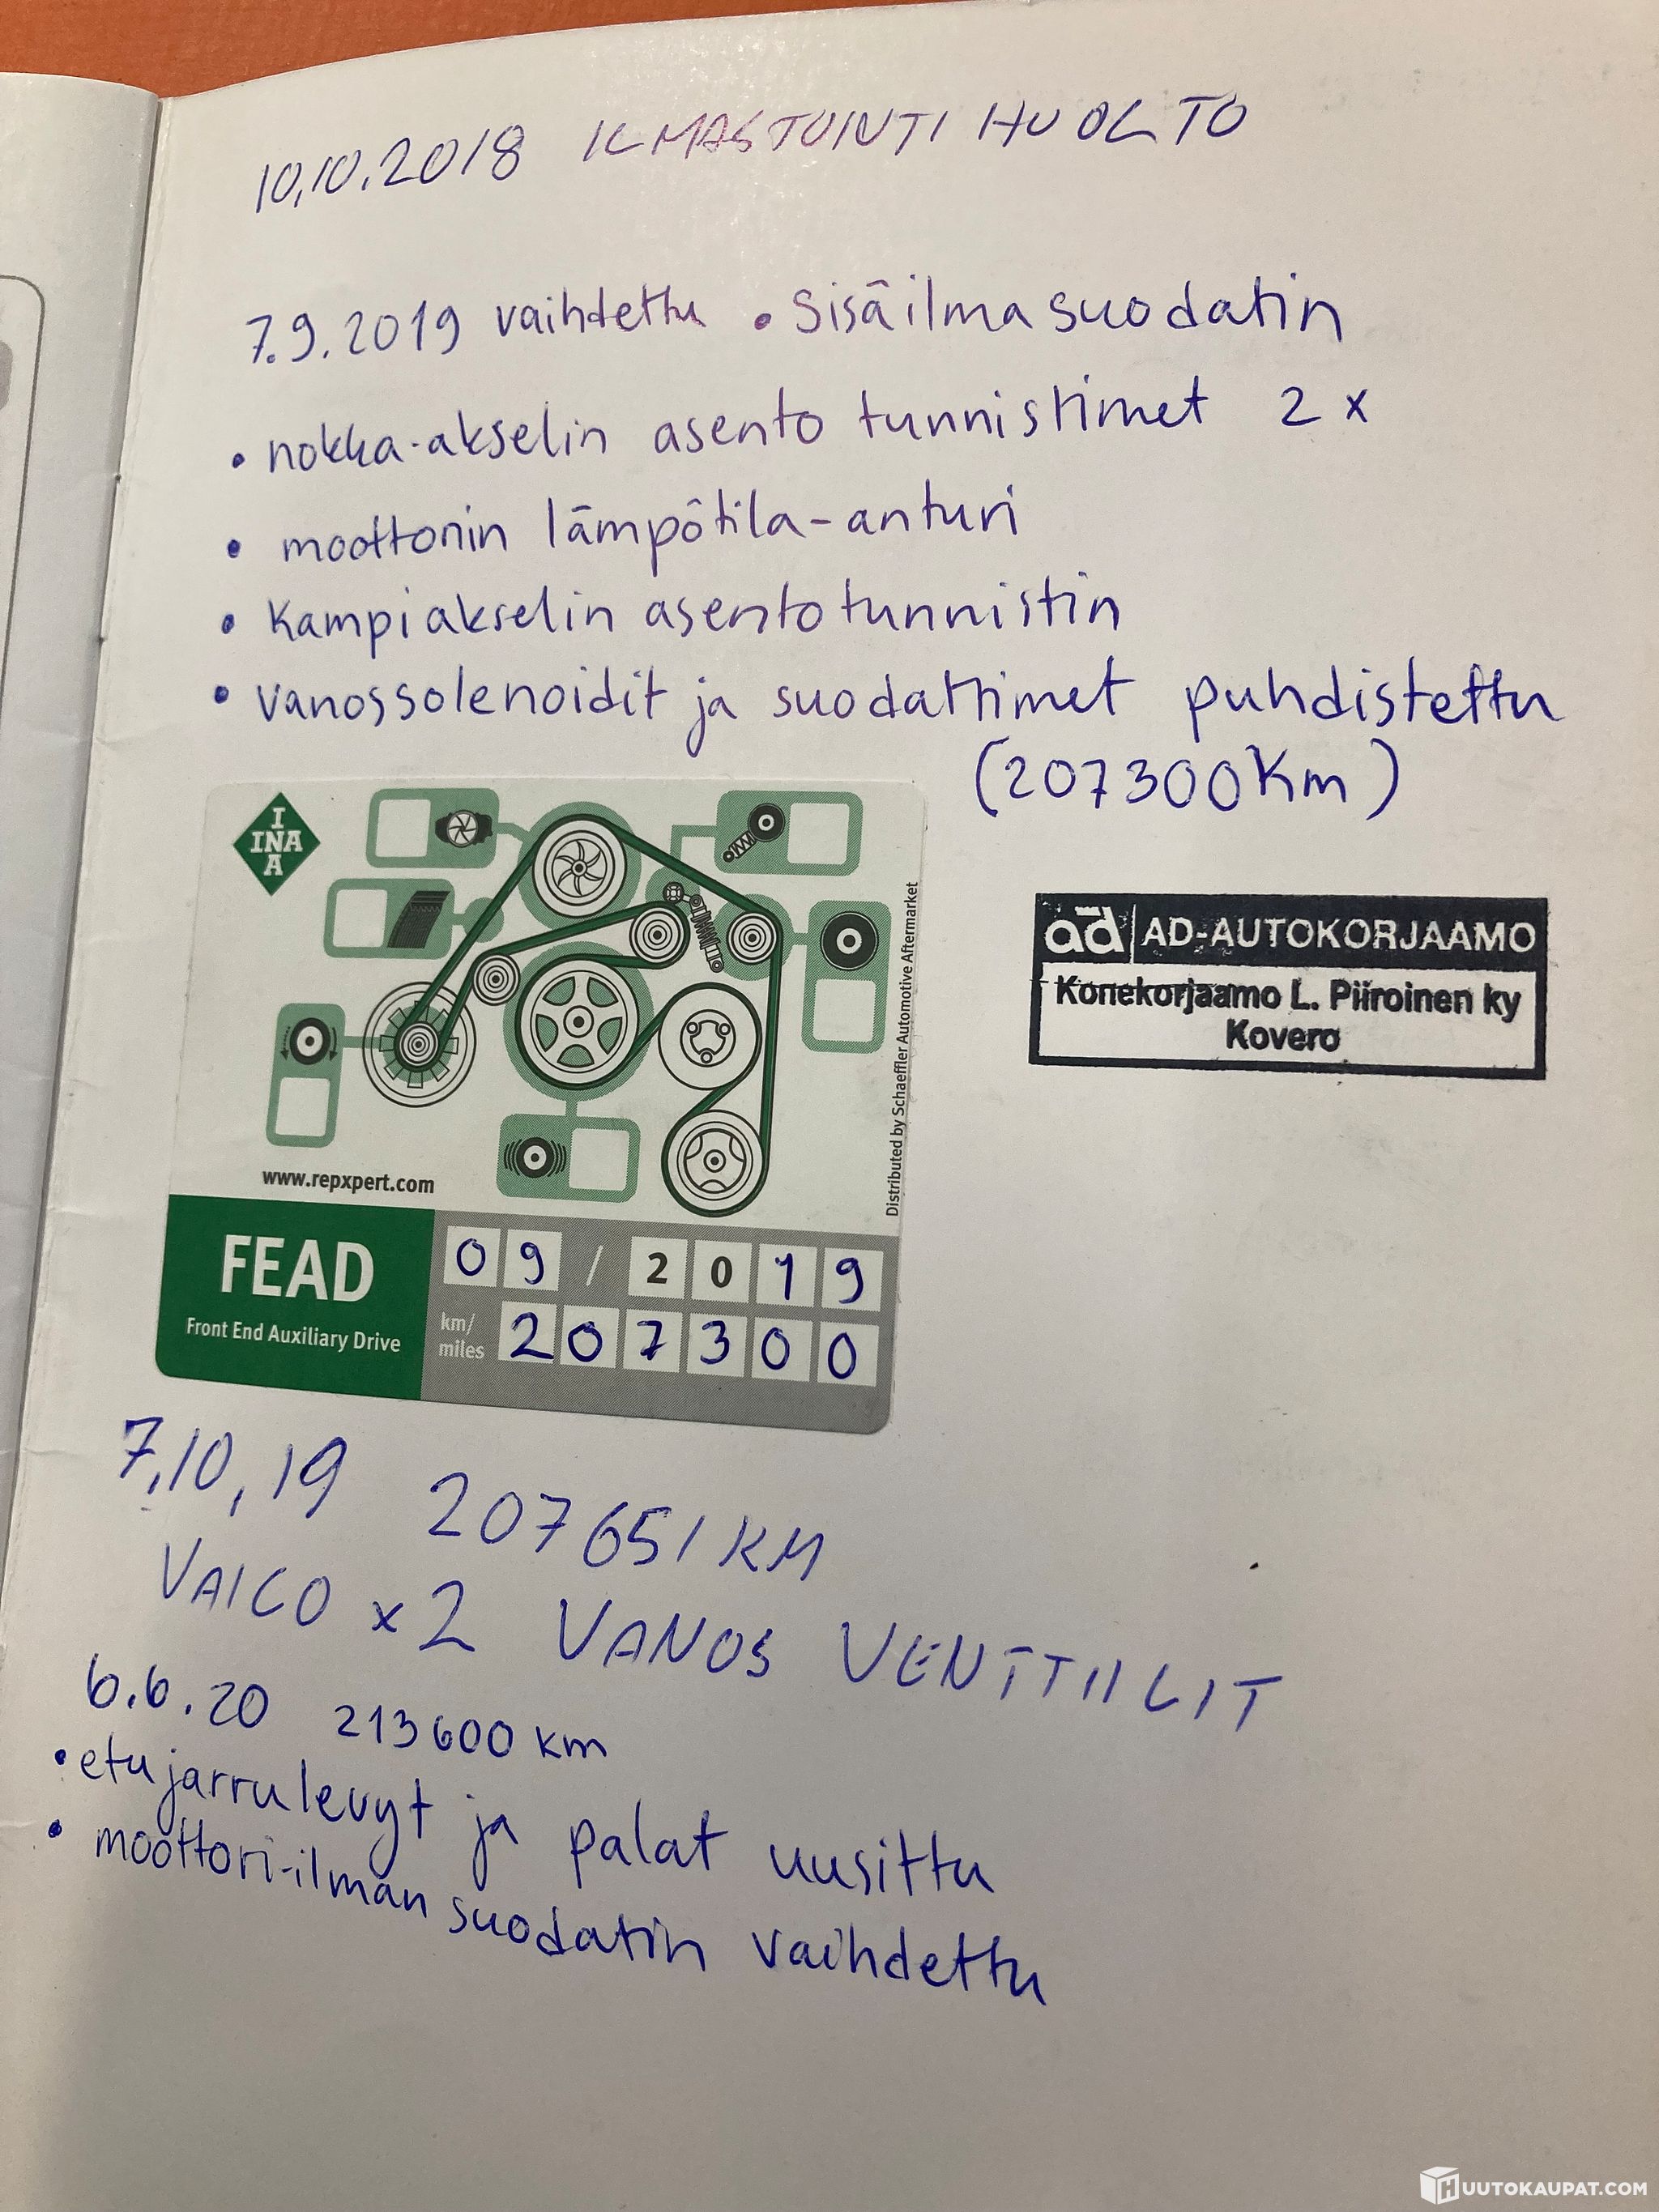 10.10.2018 ILMASTOINTI HUOLTO
7.9.2019 vaihdettu • Sisäilmasuodatin
• nokka-akselin asento tunnistimet 2 x
• moottorin lämpötila-anturi
• Kampiakselin asentotunnistin
• vanossolenoidit ja suodattimet puhdistettu
(207300Km)
I
INA
A
Distributed by Schaeffler Automotive Aftermarket
www.repxpert.com
FEAD
Front End Auxiliary Drive
09 / 2019
km/
miles
207300
ad AD-AUTOKORJAAMO
Konekorjaamo L. Piiroinen ky
Kovero
7,10,19 207651 KM
VAICO x2 VANOS VENTTIILIT
6.6.20 213600 km
• etujarrulevyt ja palat uusittu
• moottori-ilman suodatin vaihdettu
HUUTOKAUPAT.COM